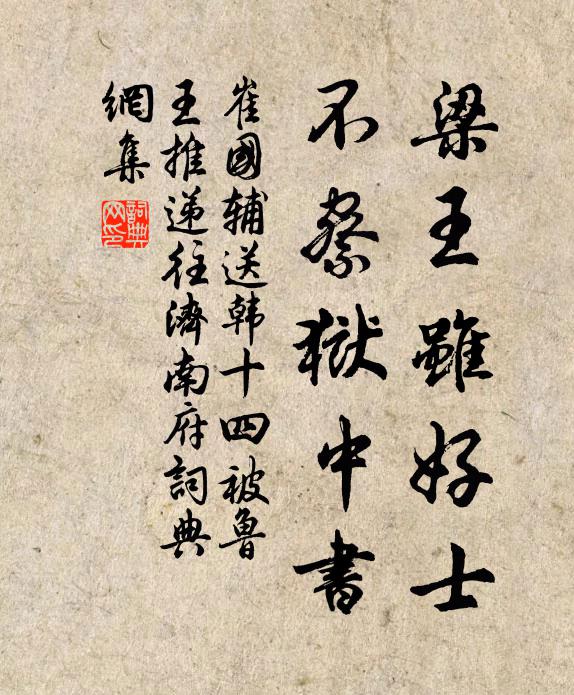 梁王雖好士
不察獄中書
崔國輔送韩十四被魯
王推递往濟南府詞典
網集
詞典网印